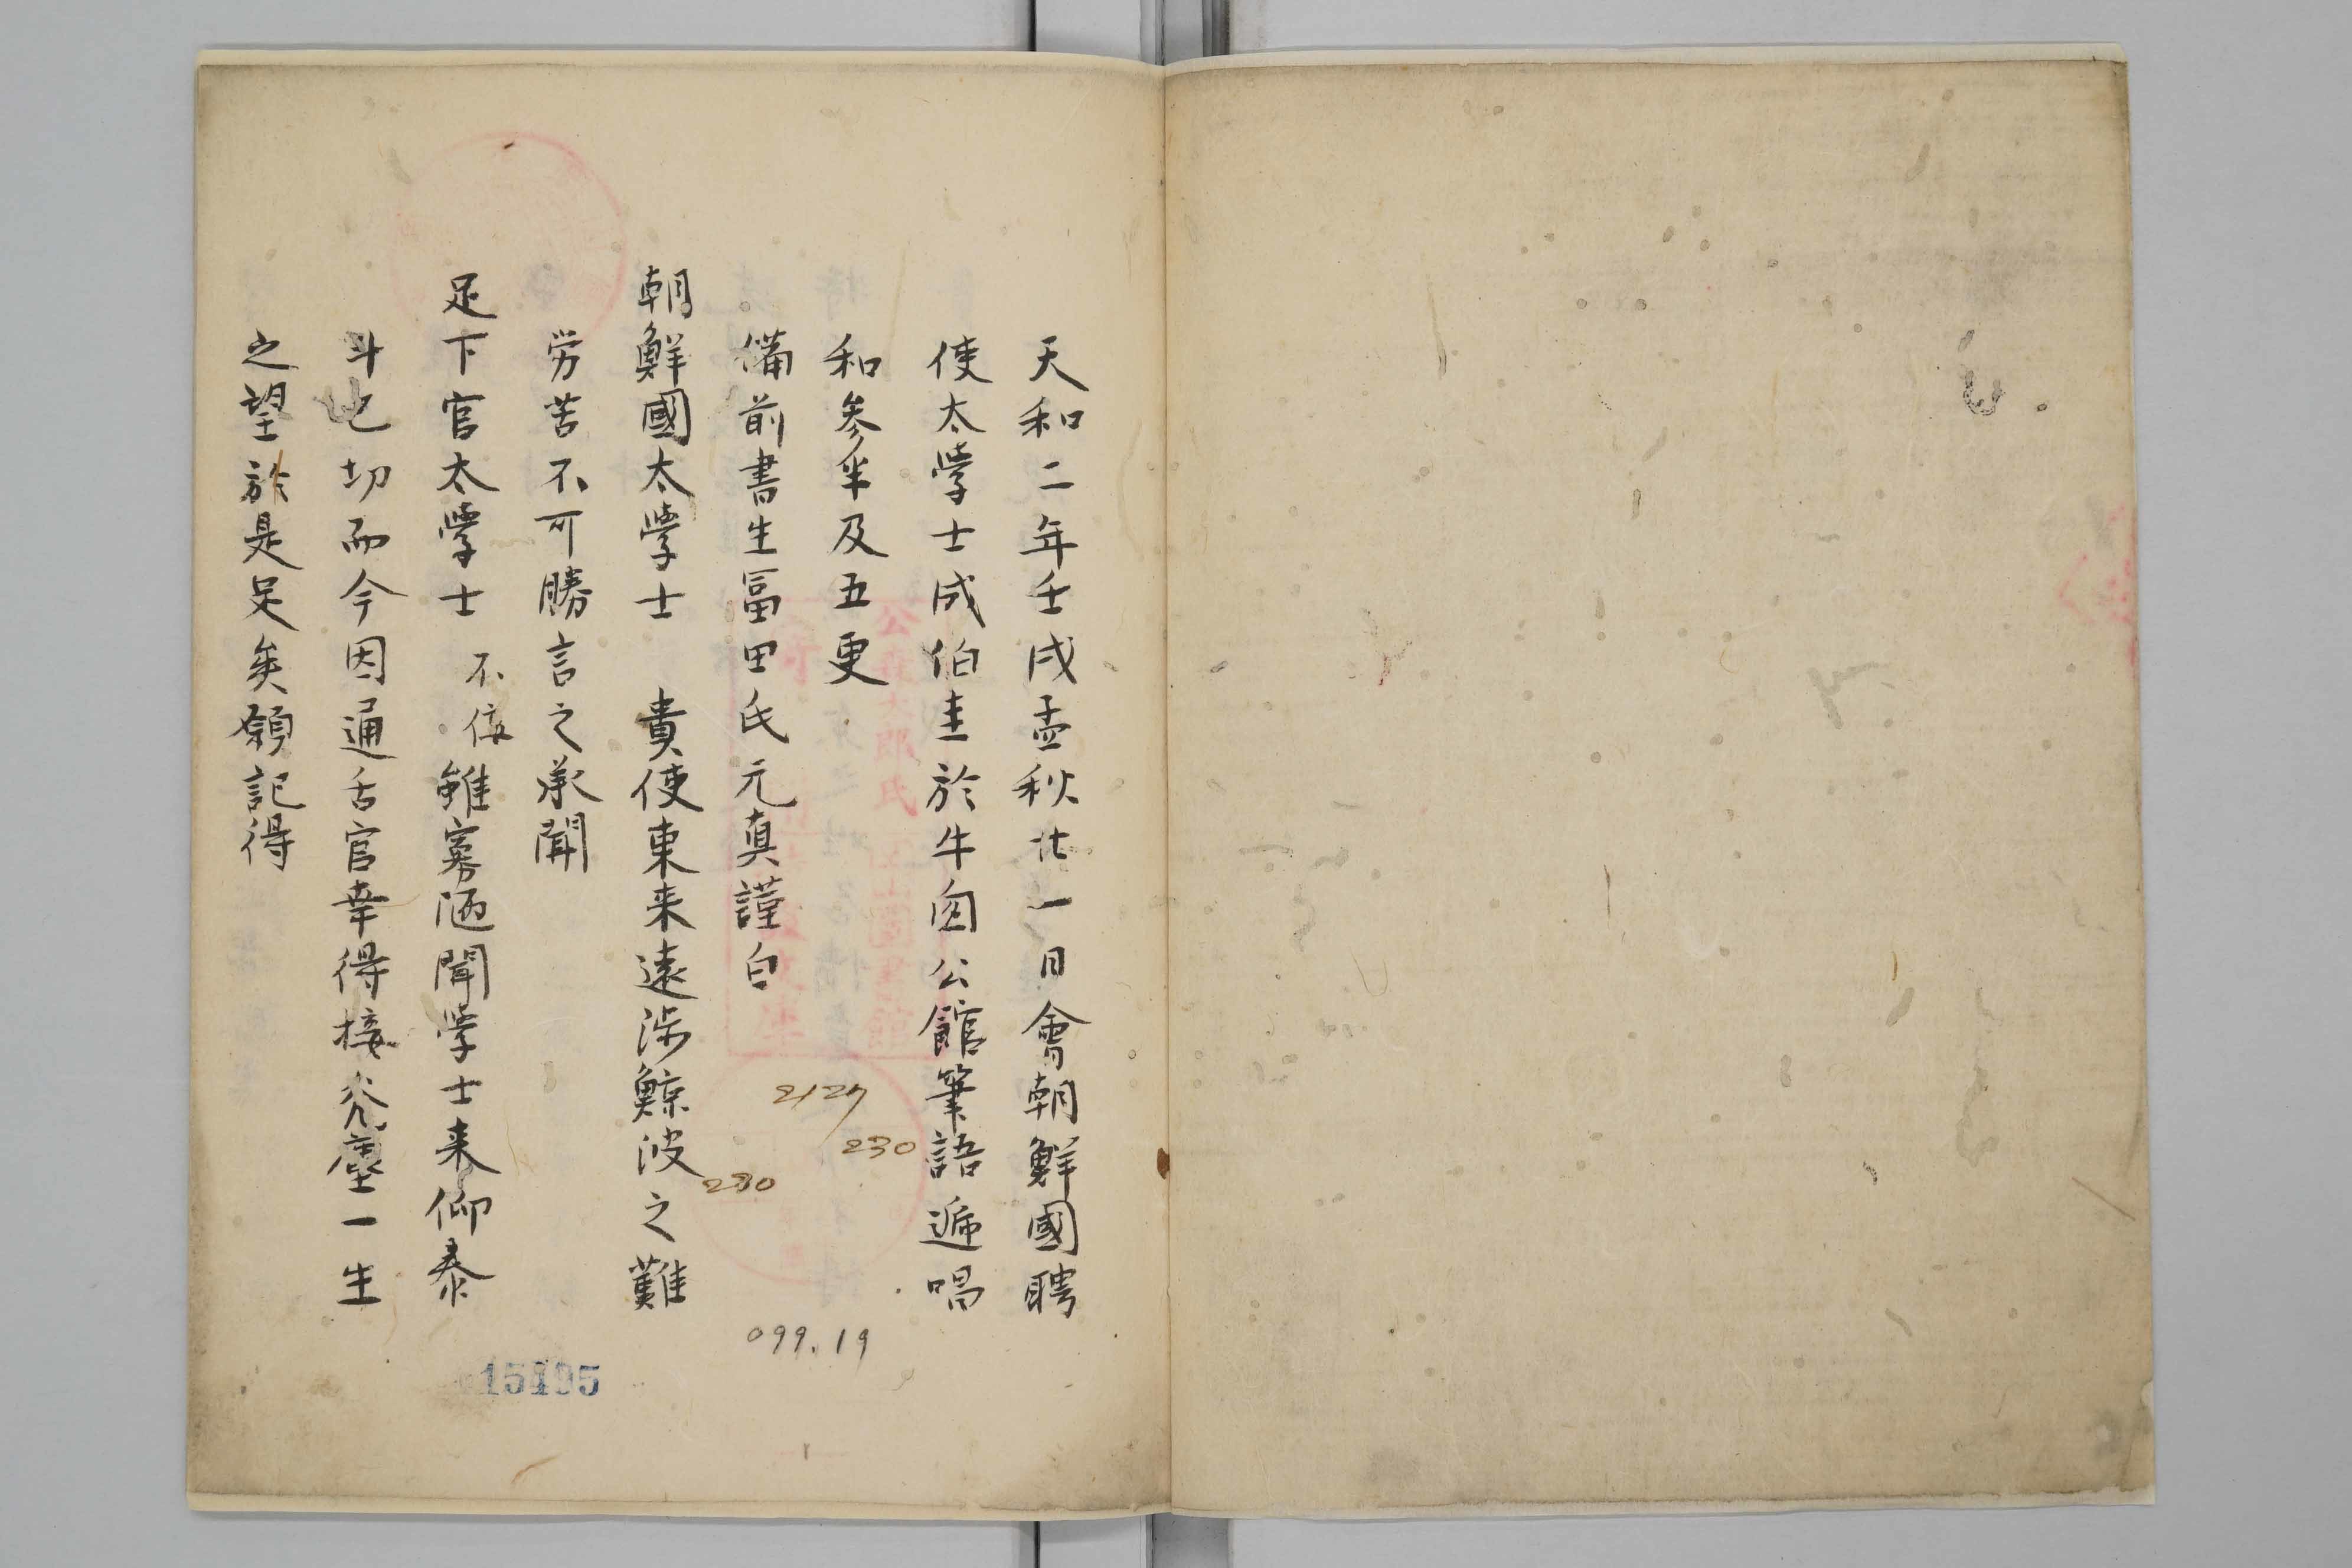 天和二年壬戌孟秋廿一日會朝鮮國聘
使太學士成伯圭於牛窓公館筆語遍唱
和參半及五更
備前書生冨田氏元真謹白
朝鮮國太學士 貴使東来遠渉鯨波之難
労苦不可勝言之承聞
足下官太學士 不佞 雖寡陋聞学士来仰泰
斗也切而今因通舌官幸得接光塵一生
之望於是足矣領記得
2127
230
230
099.19
15195